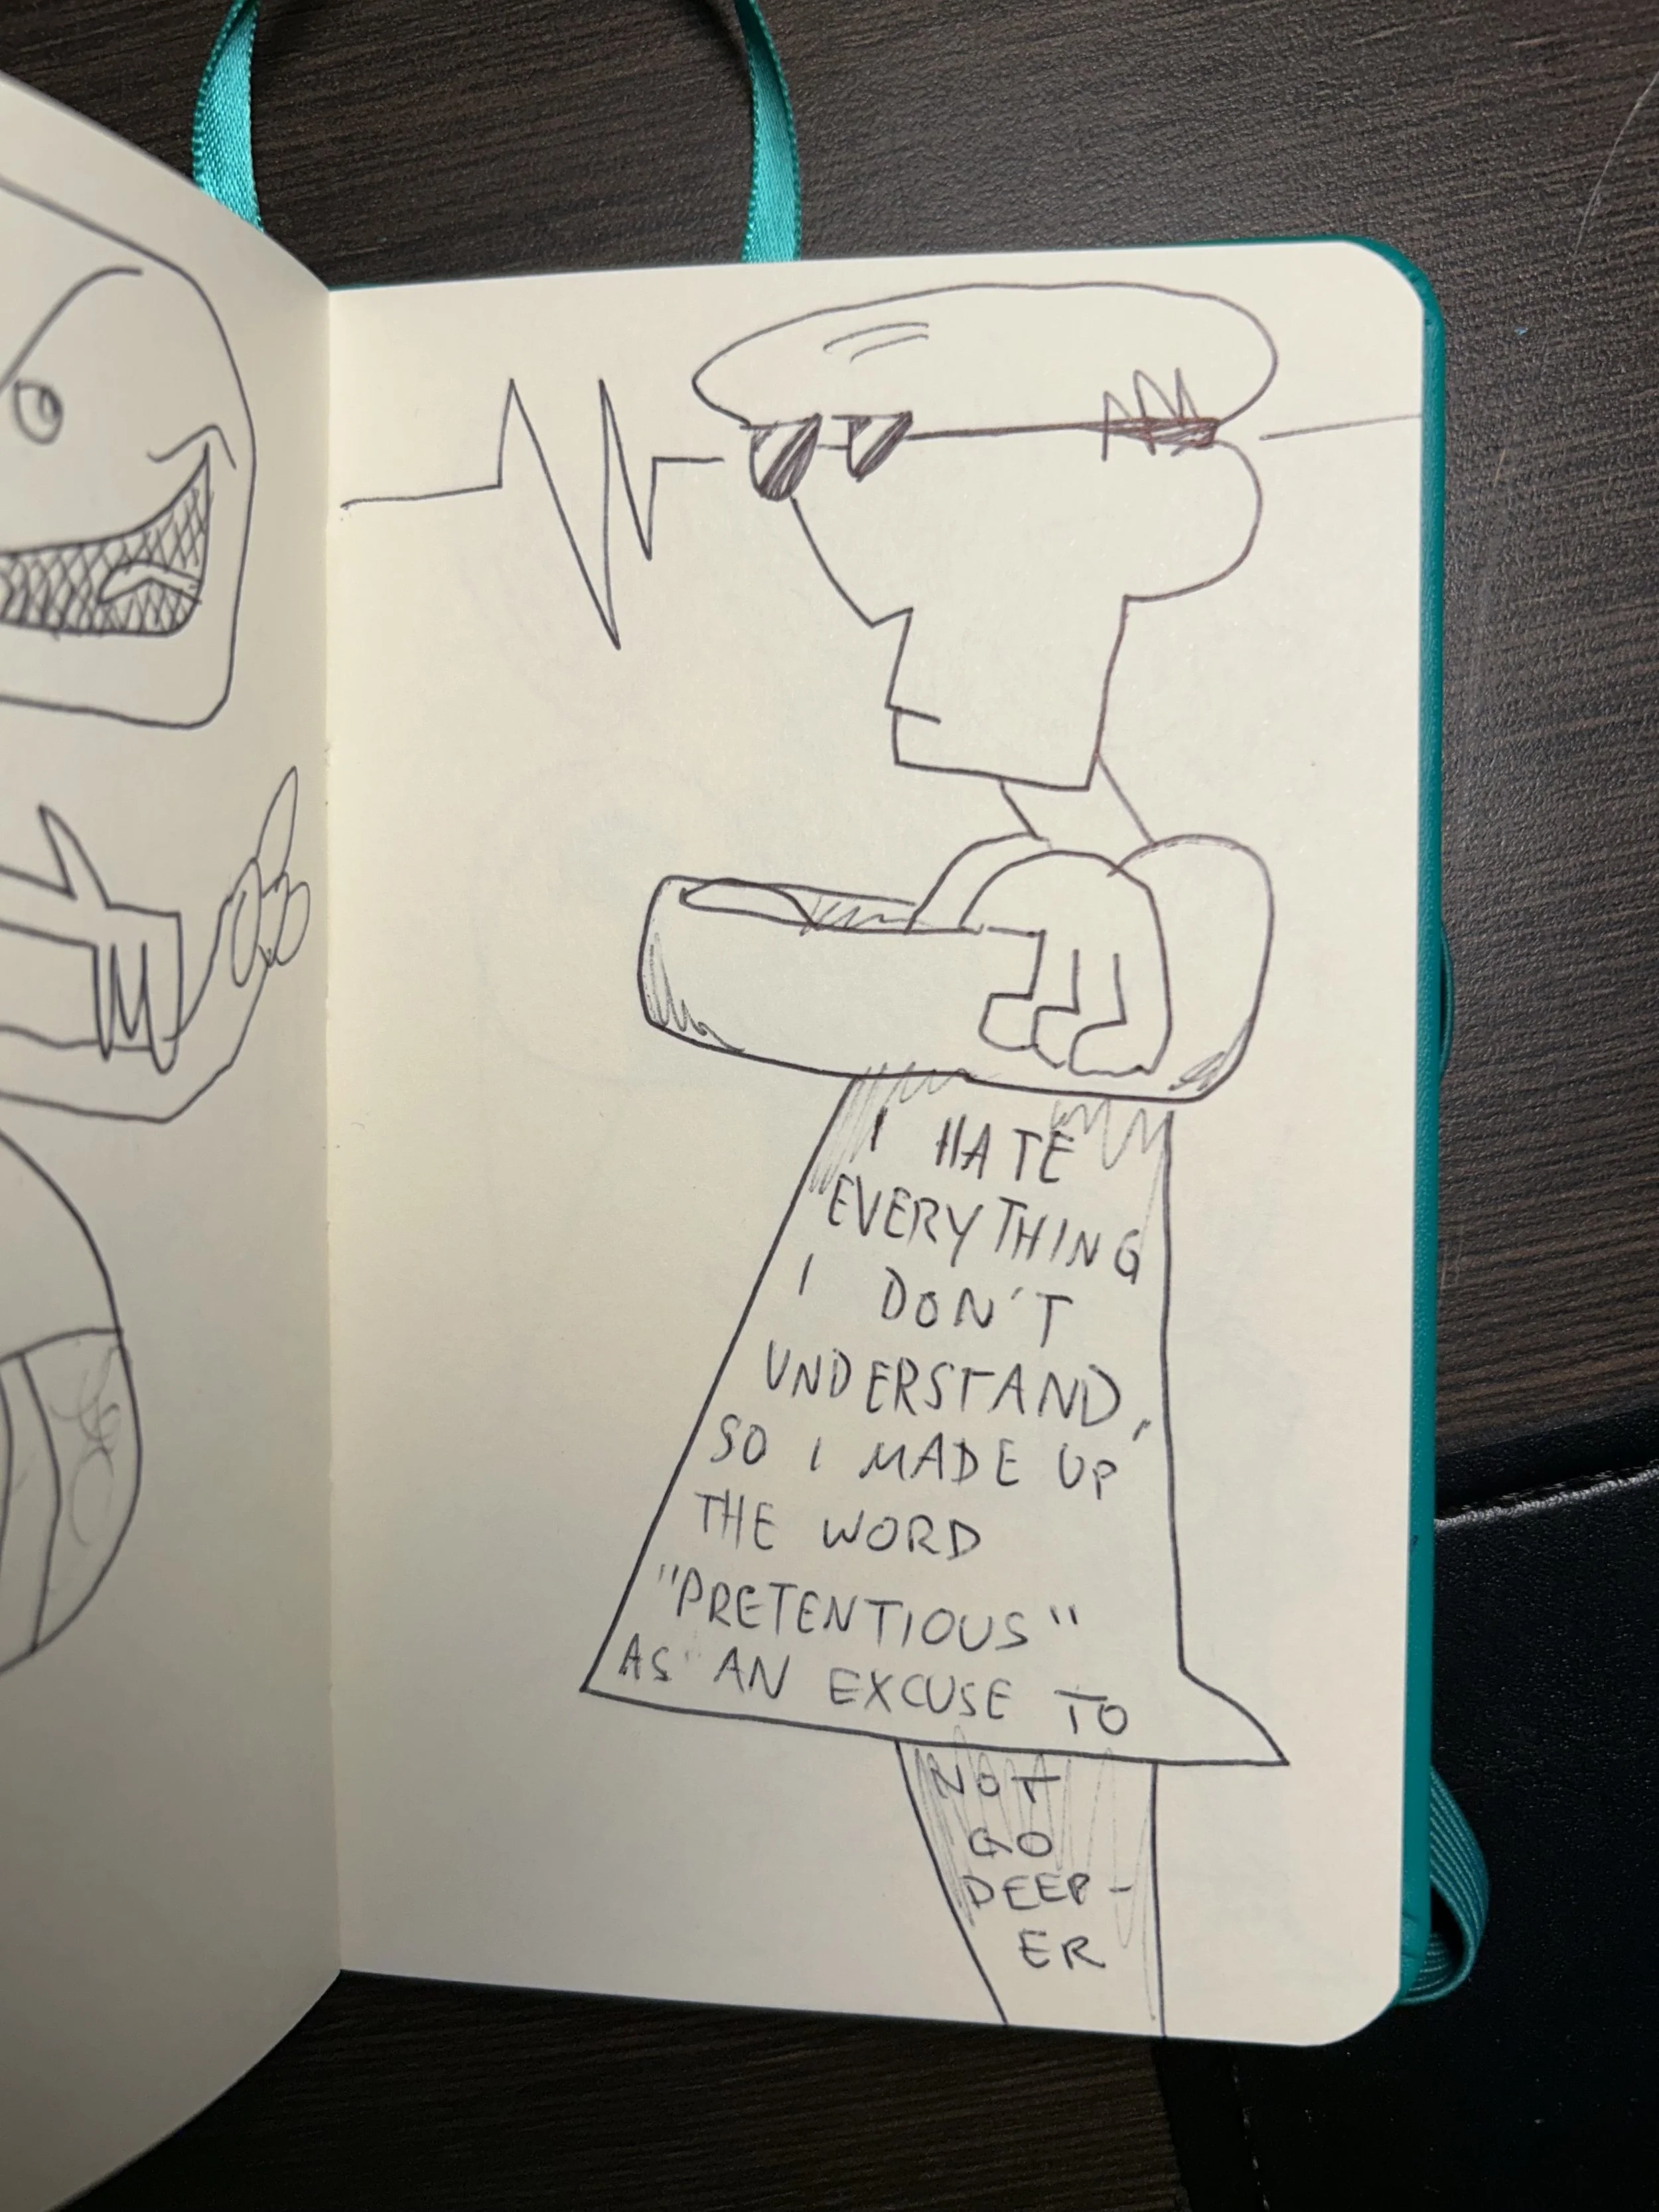 I HATE
EVERYTHING
I DON'T
UNDERSTAND,
SO I MADE UP
THE WORD
"PRETENTIOUS"
AS AN EXCUSE TO
NOT
GO
DEEP-
ER